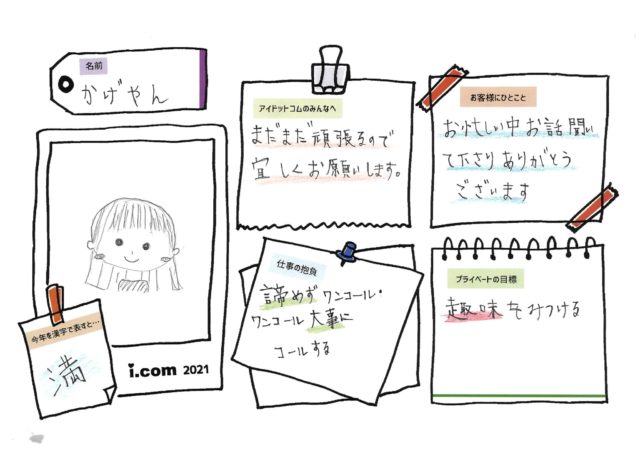 名前
かげやん
アイドットコムのみんなへ
まだまだ頑張るので
宜しくお願いします。
お客様にひとこと
お忙しい中お話聞い
て下さりありがとう
ございます
仕事の抱負
諦めずワンコール・
ワンコール大事に
コールする
プライベートの目標
趣味をみつける
今年を漢字で表すと…
満
i.com 2021